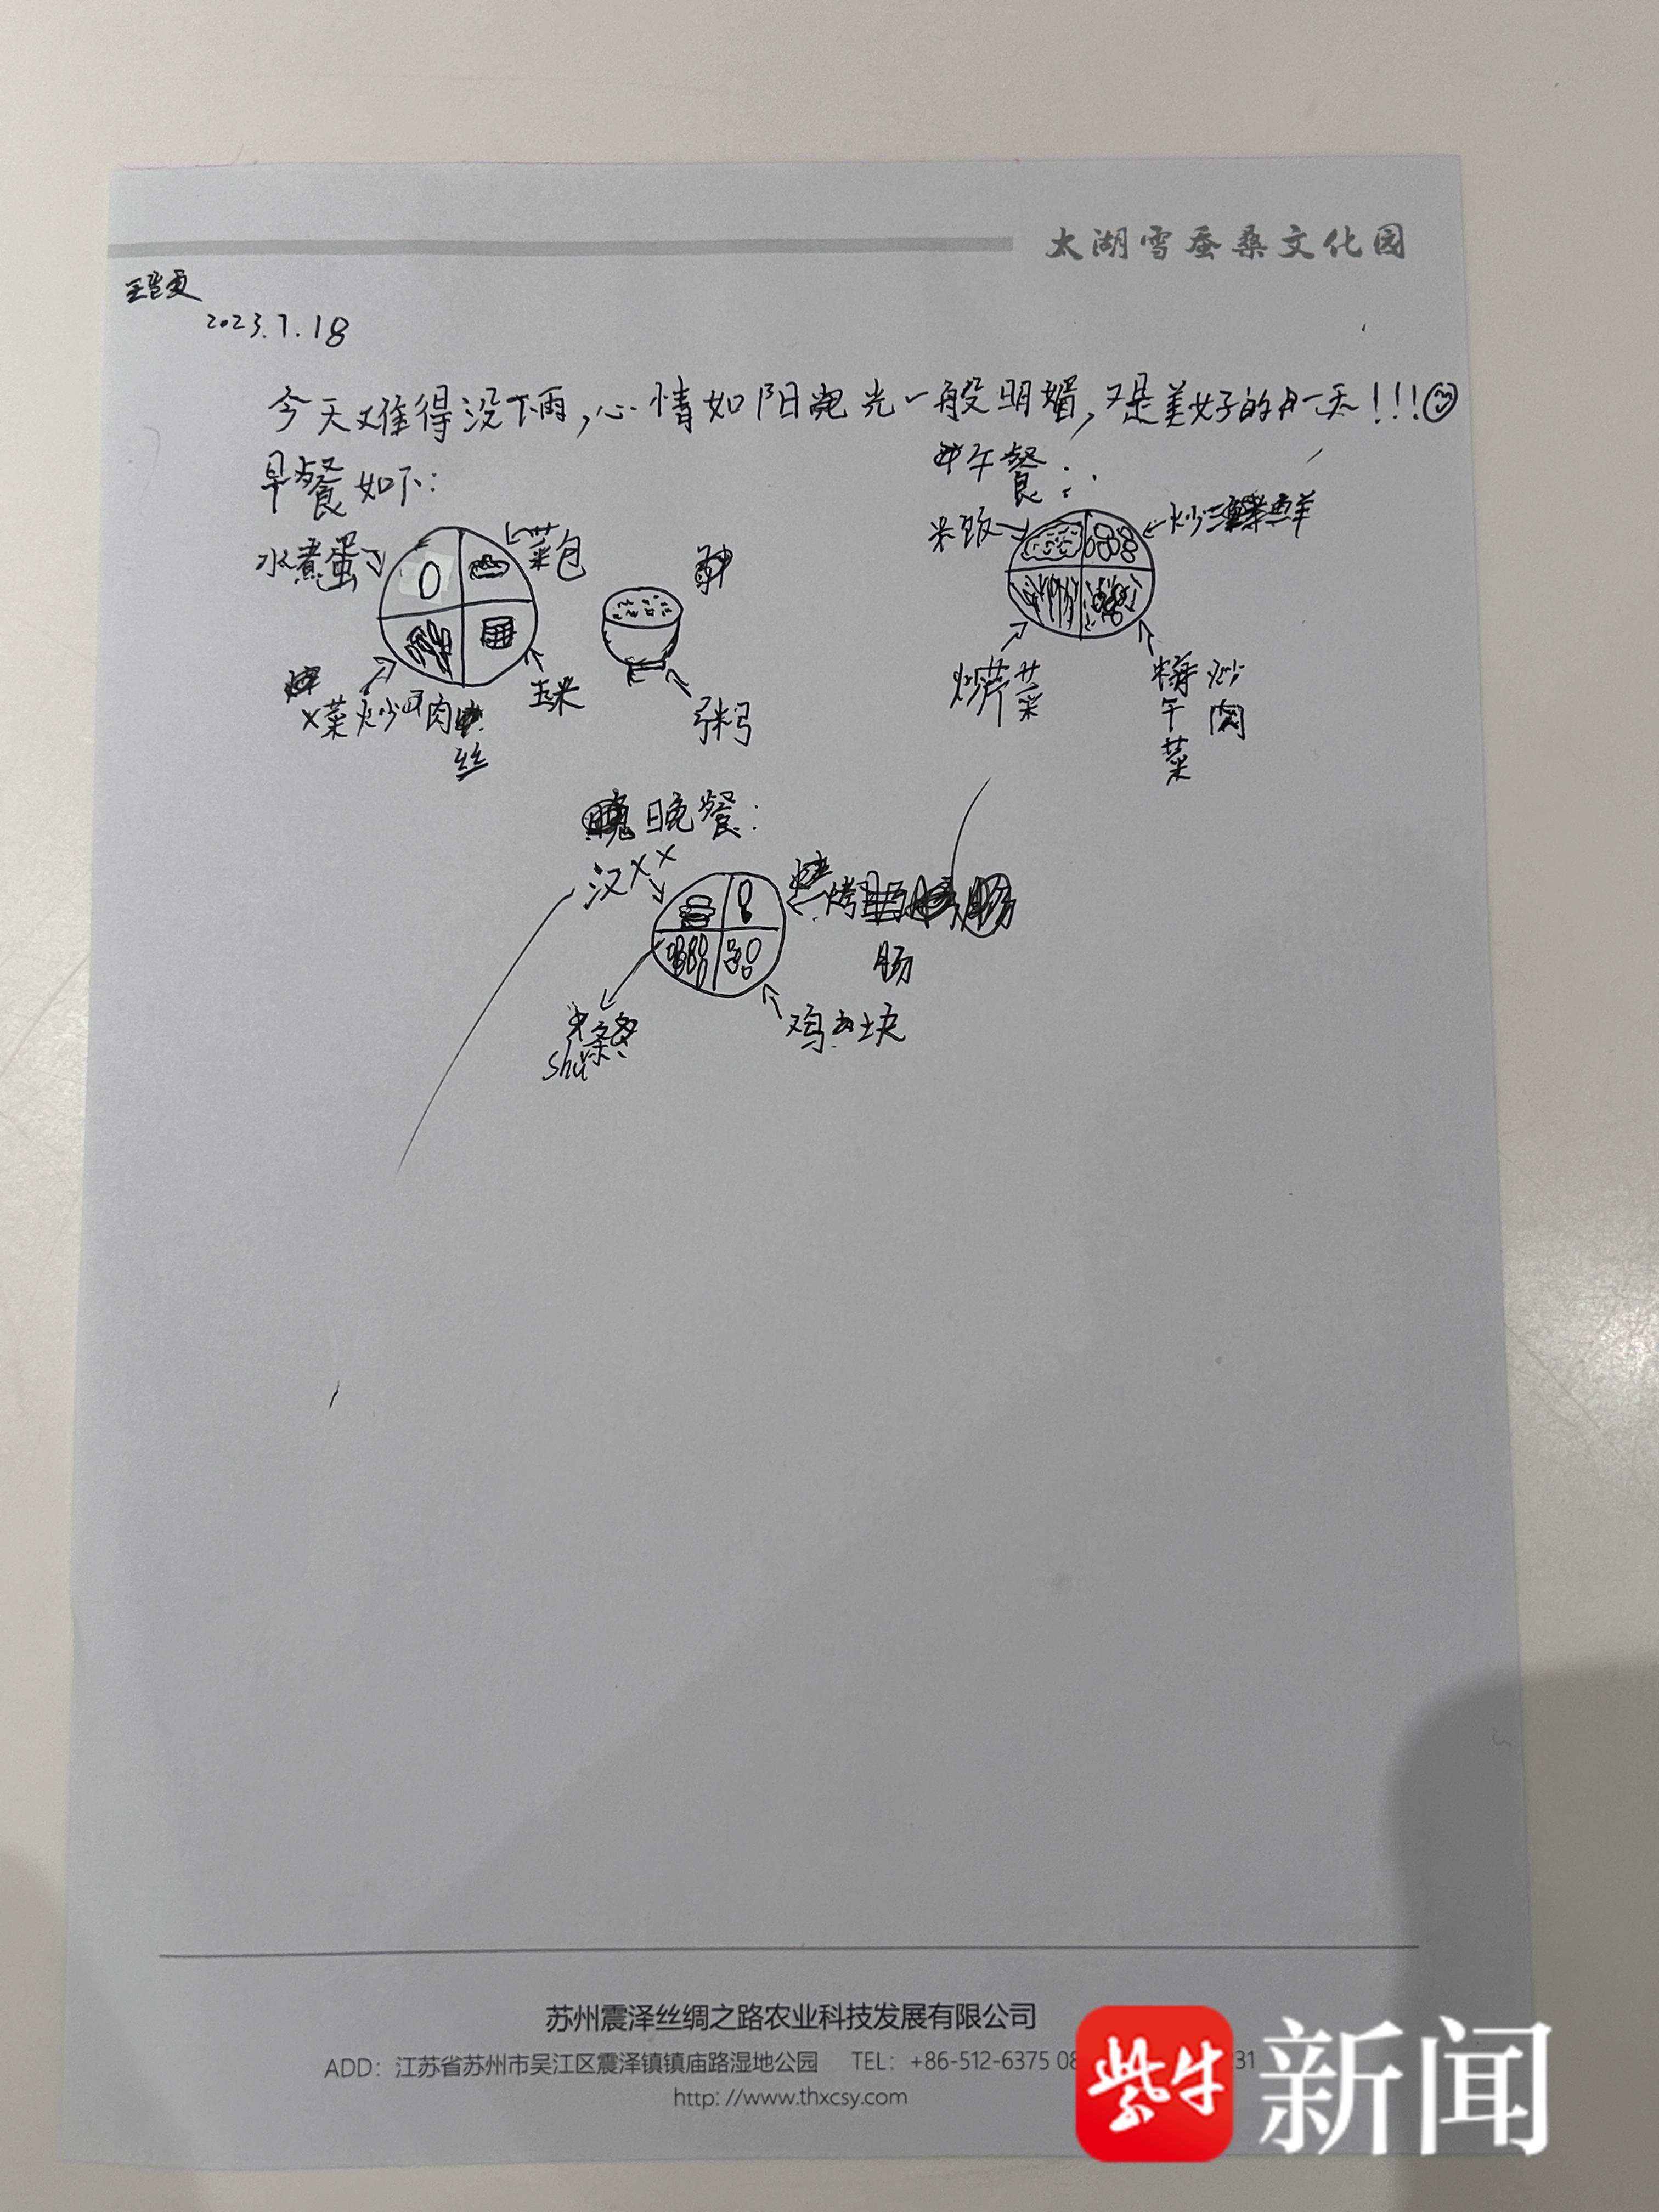 太湖雪蚕桑文化园
2023.7.18
今天难得没下雨,心情如阳光一般明媚,又是美好的一天!!!
早餐如下:
水煮蛋
菜包
x菜炒肉丝
玉米
粥
午餐:
米饭
炒三鲜
炒芹菜
梅干菜炒肉
晚餐:
汉xx
烤肠
shu条
鸡块
苏州震泽丝绸之路农业科技发展有限公司
ADD:江苏省苏州市吴江区震泽镇镇庙路湿地公园 TEL:+86-512-6375 08 31
http: //www.thxcsy.com
紫牛新闻